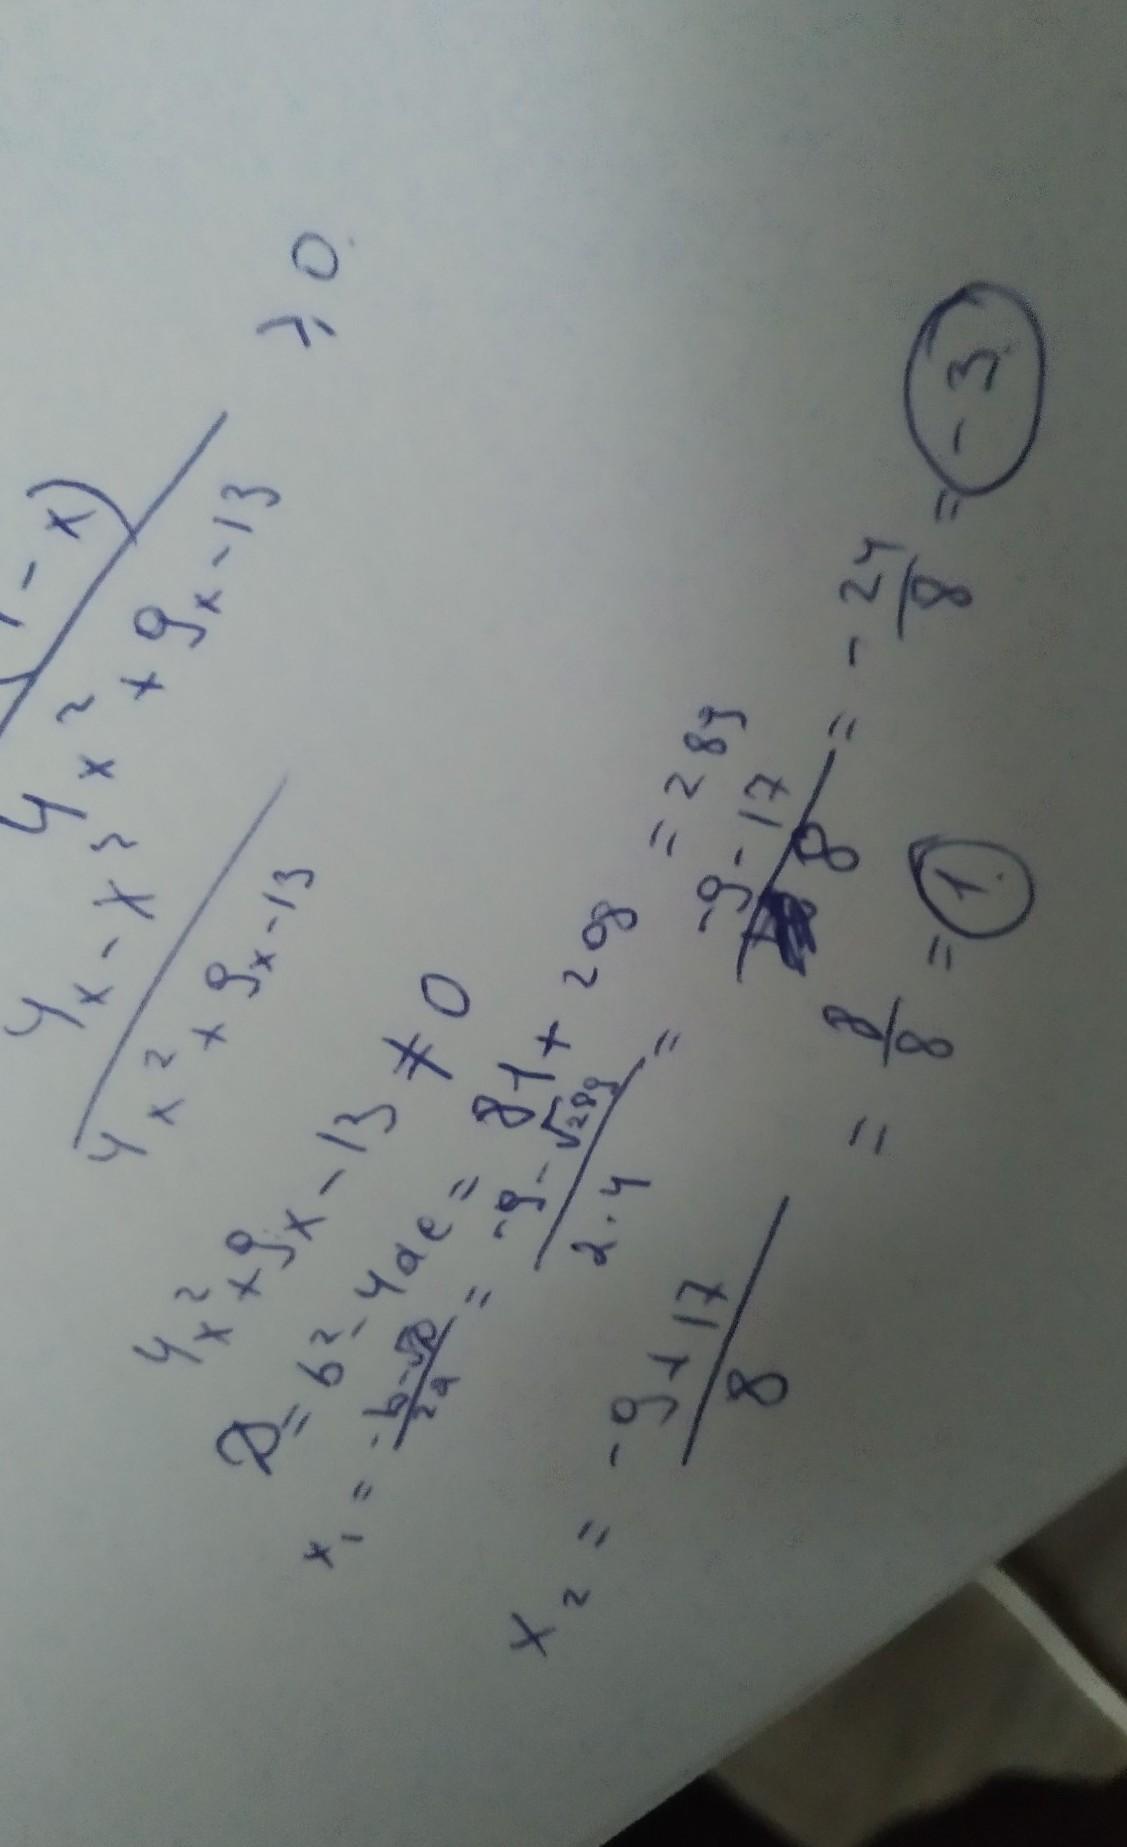 - x)
4x² + 9x - 13 ≥ 0
4x - x²
4x² + 9x - 13
4x² + 9x - 13 ≠ 0
D = b² - 4ac = 81 + 208 = 289
x₁ = -b-√D/2a = -9-√289/2·4 = -9-17/8 = -24/8 = -3
x₂ = -9+17/8 = 8/8 = 1